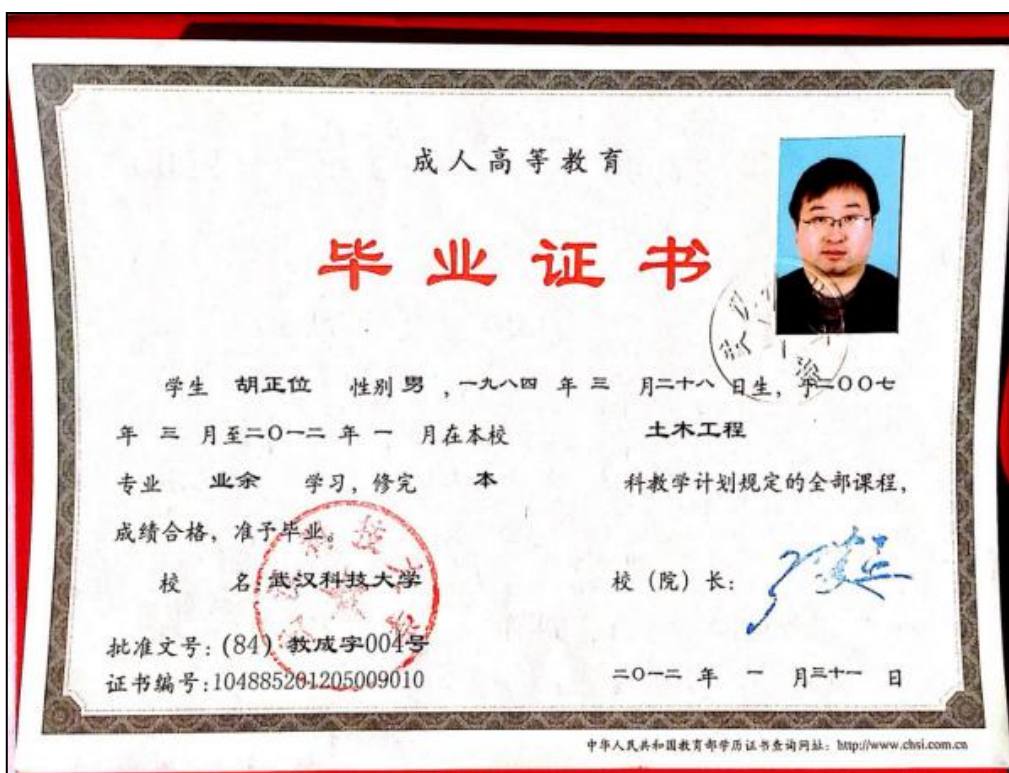 成人高等教育
毕业证书
学生 胡正位 性别 男 ，一九八四 年 三 月二十八 日生，于二〇〇七
年 三 月至二〇一二 年 一 月在本校 土木工程
专业 业余 学习，修完 本 科教学计划规定的全部课程，
成绩合格，准予毕业。
校 名：武汉科技大学 校（院）长：
批准文号：(84) 教成字004号
证书编号：104885201205009010 二〇一二 年 一 月三十一 日
中华人民共和国教育部学历证书查询网址：http://www.chsi.com.cn